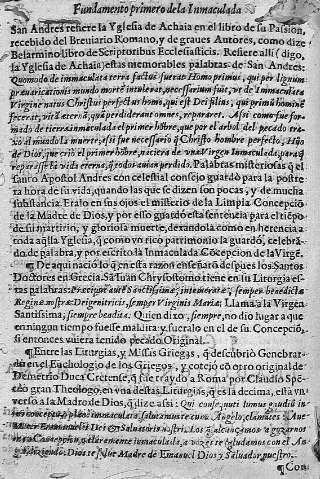 Fundamento primero de la Inmaculada
San Andres refiere la Yglesia de Achaia en el libro de su Passion,
recebido del Breuiario Romano, y de graues Autores, como dize
Belarmino libro de Scriptoribus Ecclesiasticis. Refiere alli (digo,
la Yglesia de Achaia) estas memorables palabras de San Andres:
Quomodo de immaculata terra factus fuerat Homo primus, qui per lignum
præuaricationis mundo mortẽ intulerat, necessarium fuit, vt de Immaculata
Virgine natus Christus perfectus homo, qui est Dei filius, qui primũ hominẽ
fecerat, vitã æternã, quã perdiderant omnes, repararet. Assi como fue for-
mado de tierra inmaculada el primer hõbre, que por el arbol del pecado tra-
xo al mundo la muerte, assi fue necessario q̃ Christo hombre perfecto, Hijo
de Dios, que criò el primer hõbre, naciera de vna Virgen Inmaculada, para q̃
la vida eterna, q̃ todos auian perdido. Palabras misteriosas q̃ el
Santo Apostol Andres con celestial consejo guardò para la postre
ra hora de su vida, quando las que se dizen son pocas, y de mucha
substancia. Eralo en sus ojos el misterio de la Limpia Concepciõ
de la Madre de Dios, y por esso guardò esta sentencia para el tiẽpo
de su martirio, y gloriosa muerte, dexandola como en herencia a
toda aq̃lla Yglesia, q̃ como vn rico patrimonio la guardò, celebrã-
do de palabra, y por escrito la Inmaculada Cõcepcion de la Virgẽ.
¶ De aqui naciò lo q̃ en esta razon enseñaron despues los Santos
Doctores en Grecia. San Iuan Chrisostomo tiene en su Liturgia es-
tas palabras: semper benedictæ
Reginæ nostræ: Deigenitricis, semper Virginis Mariæ; Llama a la Virgen
Santissima, siempre bendita. Quien dixo, siempre, no dio lugar a que
en ningun tiempo fuesse maldita, y sucralo en el de su Concepciõ,
si entonces vuiera tenido pecado Original.
¶ Entre las Liturgias, y Missas Griegas, q̃ descubriò Genebrar-
do en el Euchologio de los Griegos, y cotejò cõ otro original de
Demetrio Duca Cretense, q̃ fue traydo a Roma por Claudio Spẽ-
ceo gran Theologo, en vna destas Liturgias, q̃ es la decima, està vn
verso a la Madre de Dios, q̃ dize assi:
immaculata
Dios, te salue Madre de Emanuel Dios y Saluador nuestro.
¶ Con